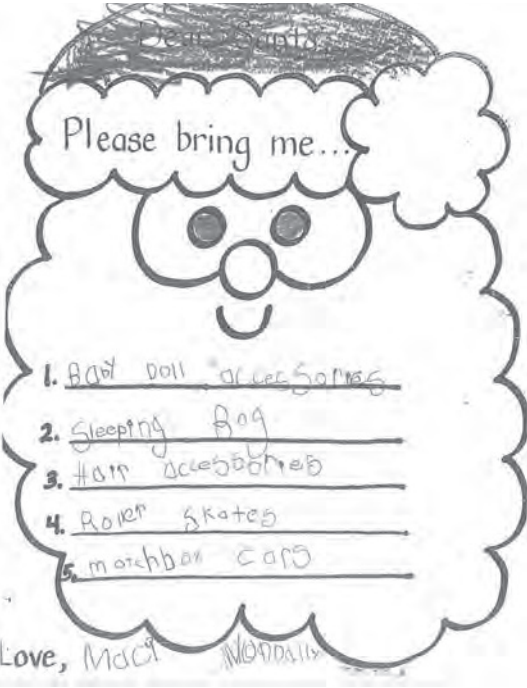 Dear Santa...
Please bring me...
1. Baby Doll accessories
2. Sleeping Bag
3. Hair accessories
4. Roller Skates
5. matchbox cars
Love, Maci